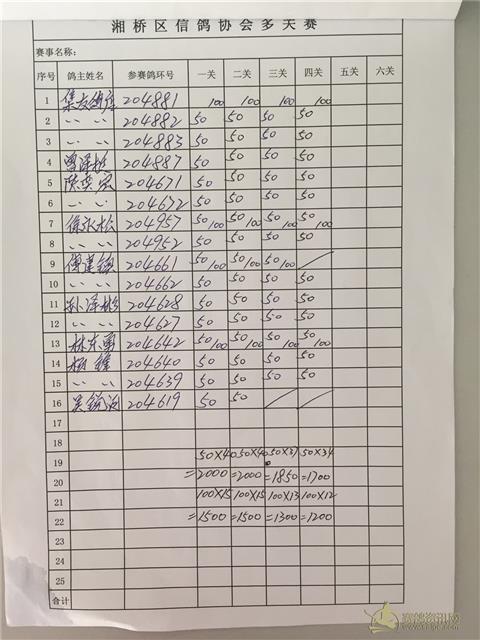 湘桥区信鸽协会多关赛
赛事名称:
序号 鸽主姓名 参赛鸽环号 一关 二关 三关 四关 五关 六关
1 集友 204881 100 100 100 100
2 〃 〃 204882 50 50 50 50
3 〃 〃 204883 50 50 50 50
4 曾泽 204887 50 50 50 50
5 204671 50 50 50 50
6 〃 〃 204672 50 50 50 50
7 徐永松 204957 50/100 50/100 50/100 50/100
8 〃 〃 204952 50 50 50 50
9 傅 204661 50/100 50/100 50/100 /
10 〃 〃 204662 50 50 50 50
11 孙泽彬 204628 50 50 50 50
12 〃 〃 204627 50 50 50 50
13 林东勇 204642 50/100 50/100 50/100 50/100
14 204640 50 50 50 50
15 〃 〃 204639 50 50 50 50
16 吴 204619 50 50 / /
17
18
19 50X40 50X40 50X37 50X34
20 =2000 =2000 =1850 =1700
21 100X15 100X15 100X13 100X12
22 =1500 =1500 =1300 =1200
23
24
25
合计